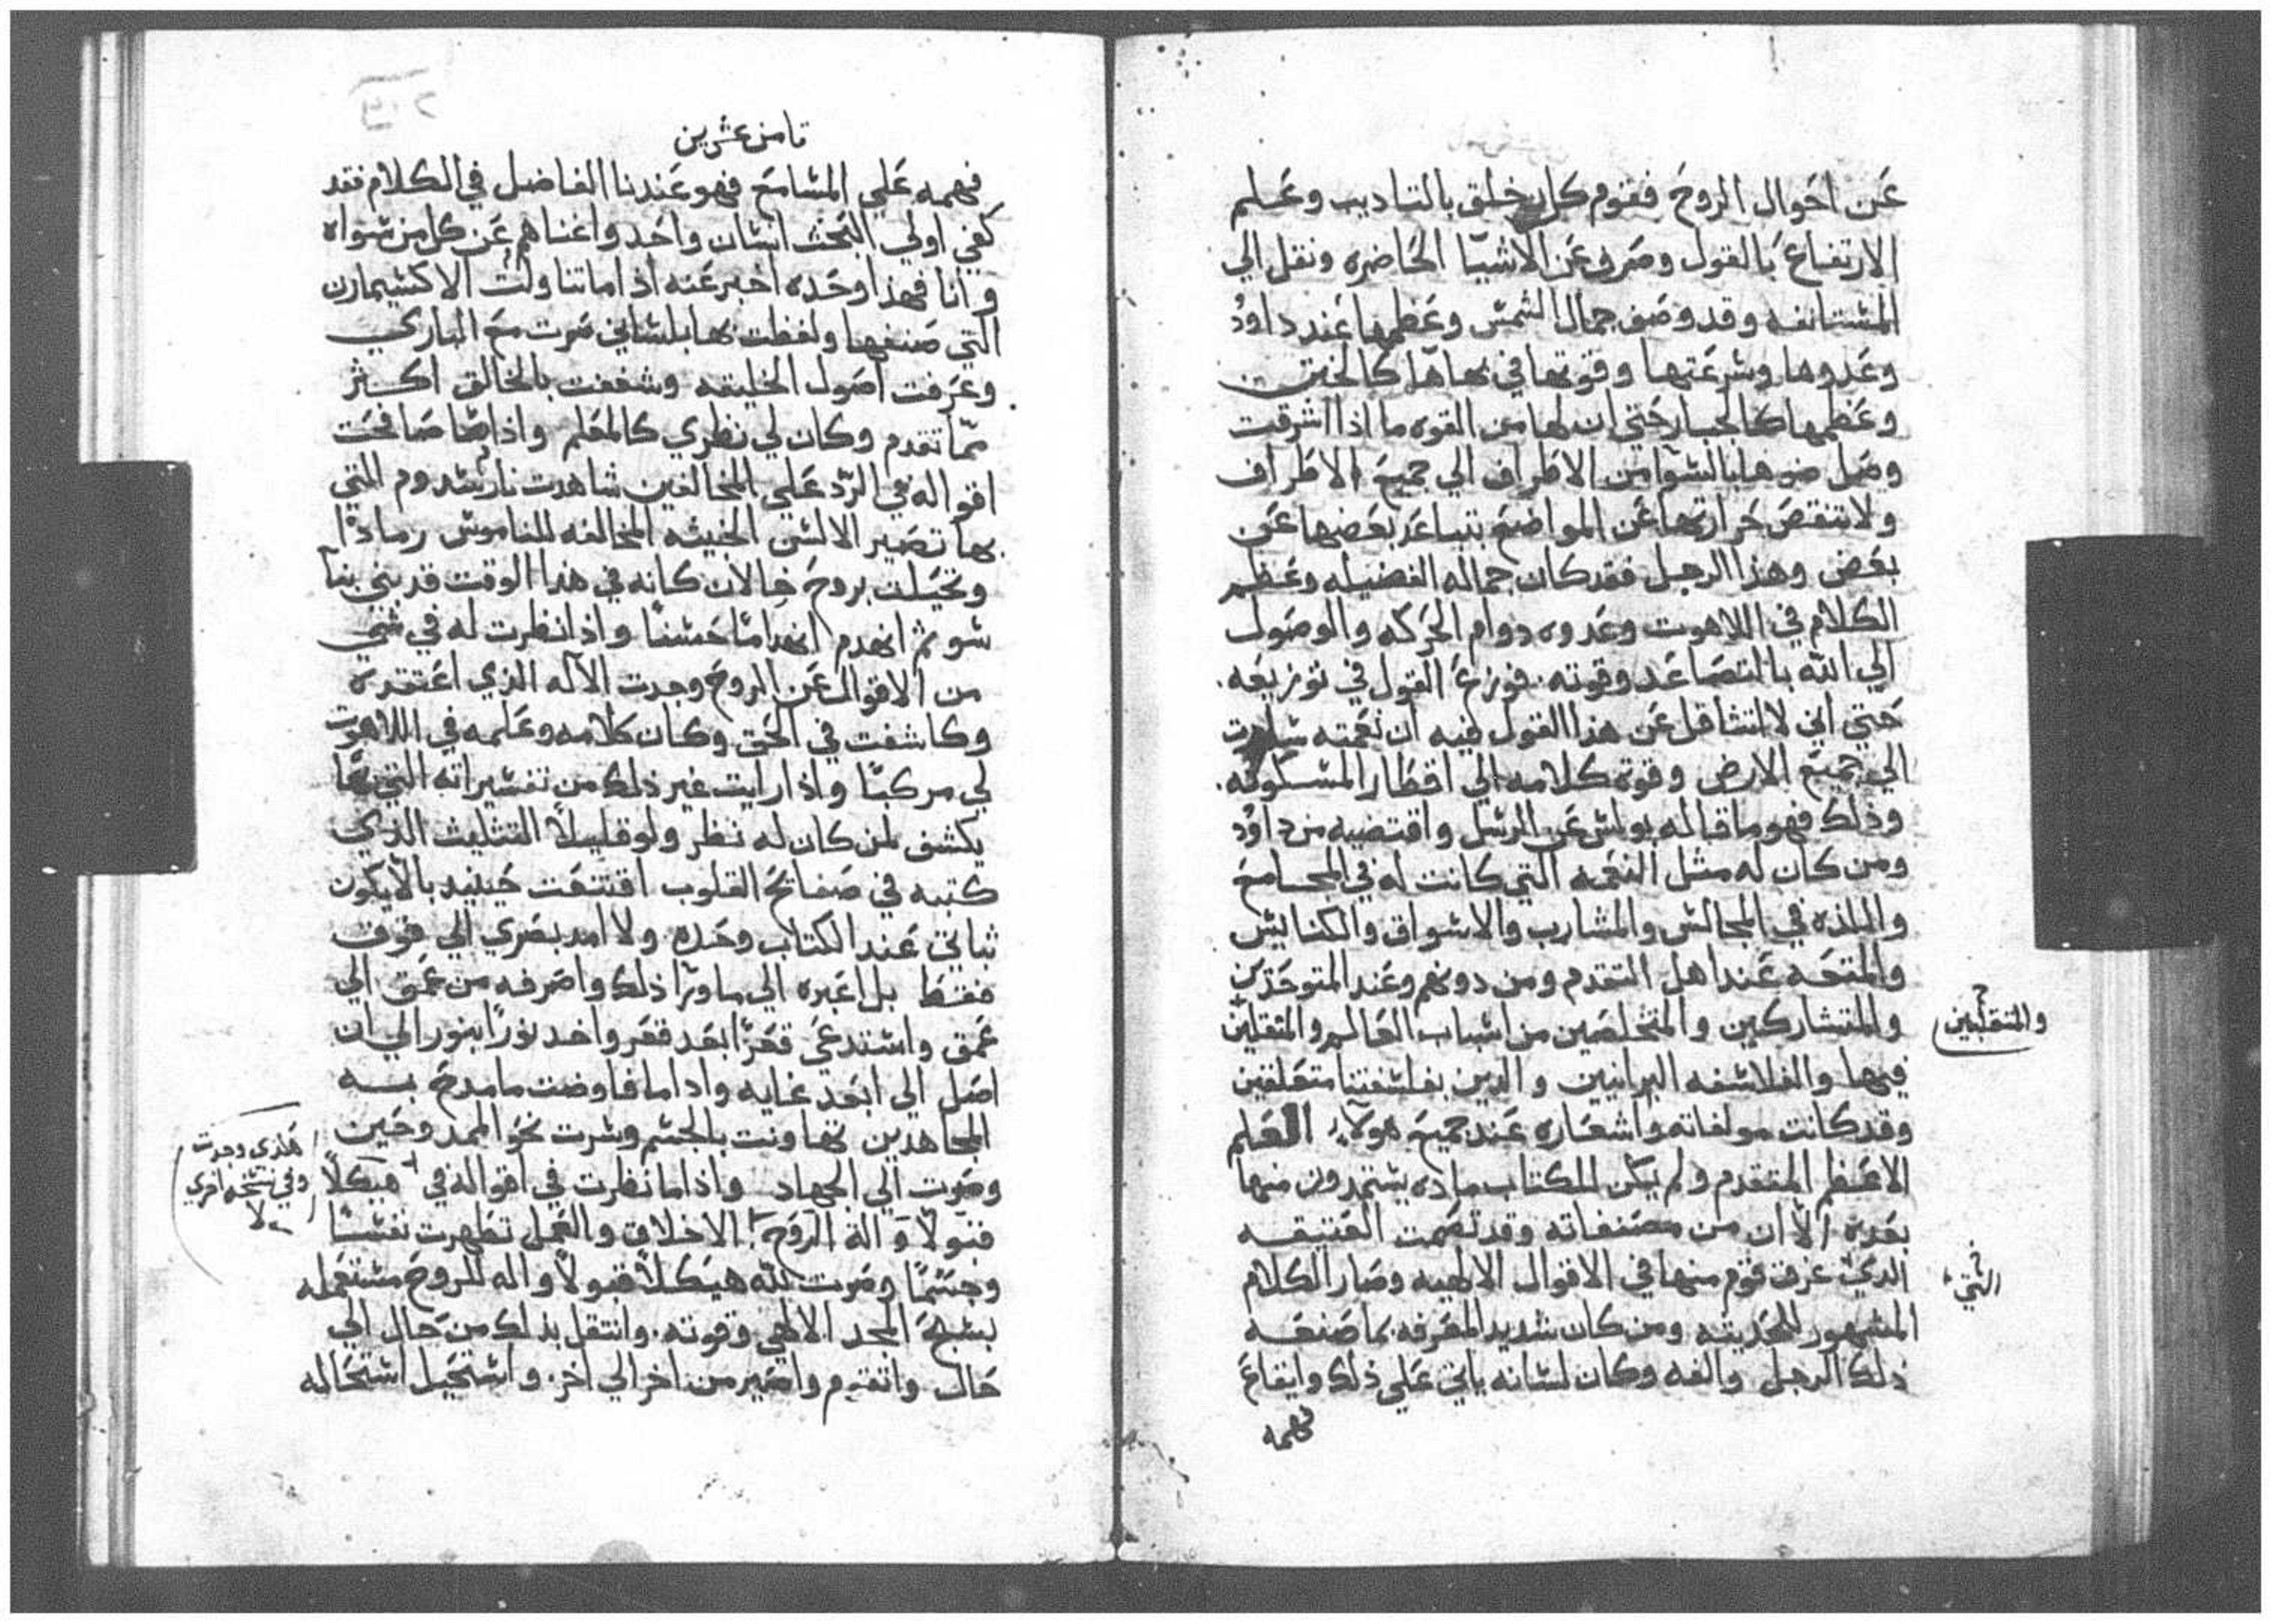 عن احوال الروح فقوم كل خلق بالتاديب وعلم
الارتفاع بالقول وصرف عن الاشيا الحاضره ونقل الي
المستانفه وقد وصف جمال الشمس وعظمها عند داوُد
وعدوها وسرعتها وقوتها في بهاها كالختن
وعظمها كالجبار حتي ان لها من القوه ما اذا اشرقت
وصل ضوها بالسوا من الاطراف الي جميع الاطراف
ولا تنقص حرارتها عن المواضع بتباعد بعضها عن
بعض وهذا الرجل فقد كان جماله الفضيله وعظم
الكلام في اللاهوت وعدوه دوام الحركه والوصول
الي الله بالتصاعد وقوته فوزع القول في توزيعه.
حتي اني لا اتثاقل عن هذا القول فيه ان نغمته سارت
الي جميع الارض وقوة كلامه الي اقطار المسكونه.
وذلك فهو ما قاله بولس عن الرسل واقتضبه من داوُد
ومن كان له مثل النعمه التي كانت له في المجامع
واللذه في المجالس والمشارب والاسواق والكنايس
والمتحه عند اهل التقدم ومن دونهم وعند المتوحدين
والمتشاركين والمتخلصين من اسباب العالم والمتقلبين
والمتقلبين
فيها والفلاسفه البرانيين والذين بفلسفتنا متعلقين
وقد كانت مولفاته واشعاره عند جميع هولاء العلم
الاعظم المتقدم ولم يكن للكتاب ماده يستمدون منها
بعده الا ان من مصنفاته وقد تصمت العتيقه
الذي عرف قوم منها في الاقوال الالهيه وصار الكلام
التي
المشهور للحديثه ومن كان شديد المعرفه بما صنعه
ذلك الرجل والفه وكان لسانه ياتي علي ذلك وايقاع
فهمه
ثامن عشرين
فهمه علي المسامع فهو عندنا الفاضل في الكلام فقد
كفي اولي البحث انسان واحد واغناهم عن كل من سواه
وانا فهذا وحده اخبر عنه اذا ما تناولت الاكسيمارن
التي صنفها ولفظت بها بلساني صرت مع الباري
وعرفت اصول الخليقه وشغفت بالخالق اكثر
مما تقدم وكان لي نظري كالمعلم واذا ما صافحت
اقواله في الرد علي المخالفين شاهدت نار سدوم التي
بها تصير الالسن الخبيثه المخالفه للناموس رمادًا
وتخيلت بروج خالان كانه في هذا الوقت قد بني بنا
سو ثم انهدم انهدامًا حسنًا واذا نظرت له في شي
من الاقوال عن الروح وجدت الاله الذي اعتقده
وكاشفت في الحق وكان كلامه وعلمه في اللاهوت
لي مركبًا واذا رايت غير ذلك من تفسيراته التي بها
يكشف لمن كان له نظر ولو قليلاً التثليث الذي
كتبه في صفائح القلوب اقتنعت حينيد بالا يكون
ثباتي عند الكتاب وحده ولا امد بصري الي فوق
فقط بل اعبره الي ما ورا ذلك واصرفه من عمق الي
عمق واستدعي قعرًا بعد قعر واخد نورًا بنور الي ان
اصل الي ابعد غايه واذا ما فاوضت ما مدح به
المجاهدين تهاونت بالجسم وسرت نحو الممدوحين
وضوت الي الجهاد واذا ما نظرت في اقواله في هيكلاً
هكذي وجدت
وفي نسخه اخري
لا
قبولاً والة الروح الاخلاق والعمل تطهرت نفسًا
وجسمًا وصرت لله هيكلاً قبولاً واله للروح مستعمله
بسبح المجد الالهي وقوته. وانتقل بذلك من حال الي
حال واتقدم واصير من اخر الي اخر. واستحيل استحاله